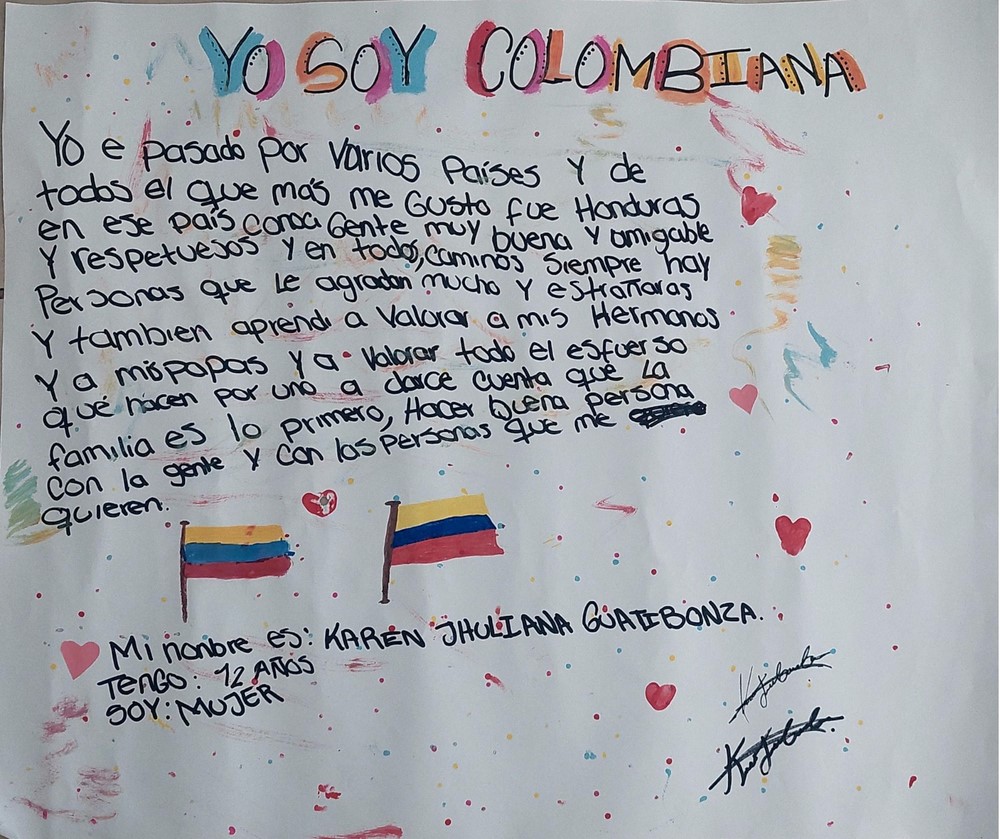 YO SOY COLOMBIANA
Yo e pasado por varios Países Y de
todos el que mas me Gusto fue Honduras
en ese país conoci Gente muy buena Y amigable
Y respetuesos Y en todos, caminos siempre hay
Personas que Le agradan mucho Y estrañaras
Y tambien aprendi a Valorar a mis Hermanos
Y a mis papas Y a Valorar todo el esfuerso
que hacen por uno a darce cuenta que La
familia es lo primero, Hacer buena persona
con la gente Y con las Personas que me
quieren.
Mi nonbre es: KAREN JHULIANA GUATIBONZA.
TENGO: 12 AÑOS
SOY: MUJER